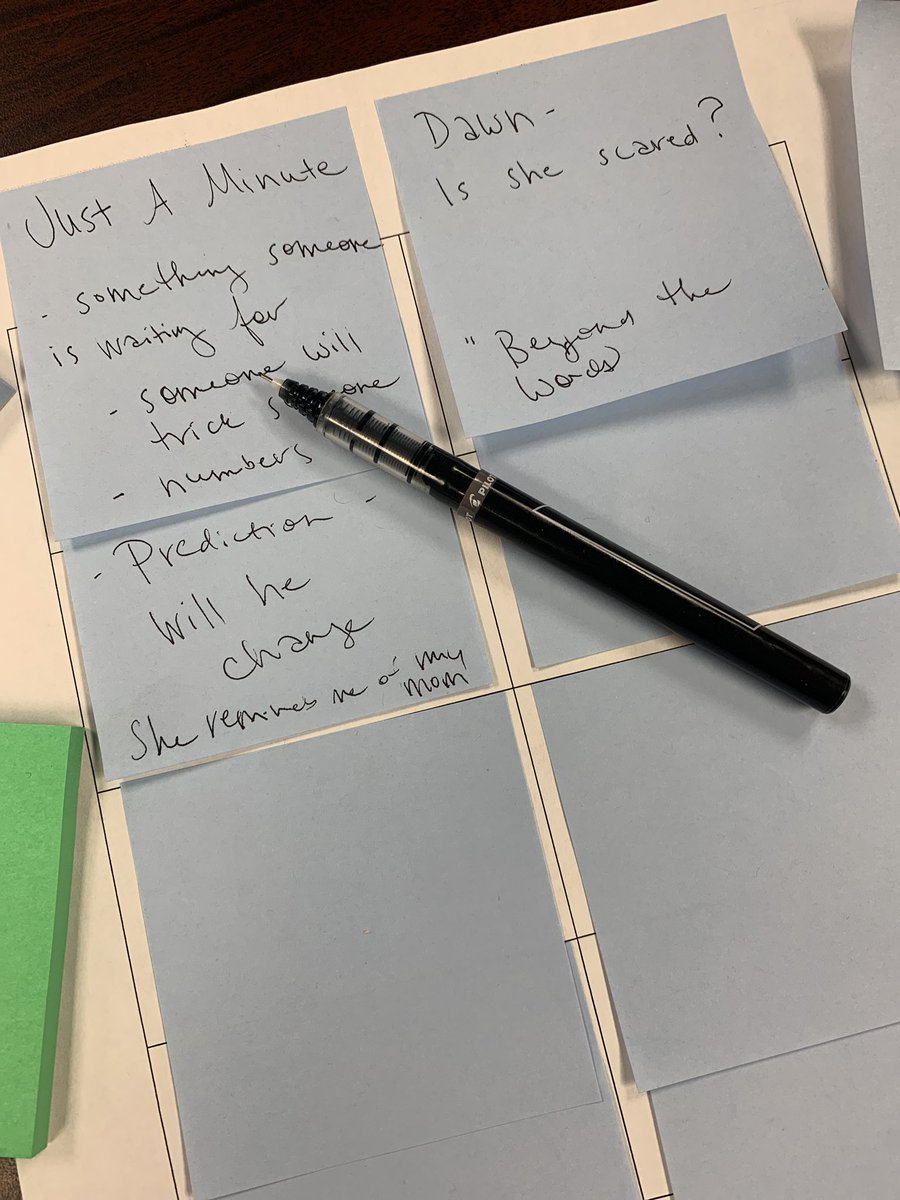 Just A Minute
- something someone
is waiting for
- someone will
trick someone
- numbers
- Prediction -
Will he
change
She reminds me of my
mom
Dawn-
Is she scared?
" Beyond the
Words
PILOT